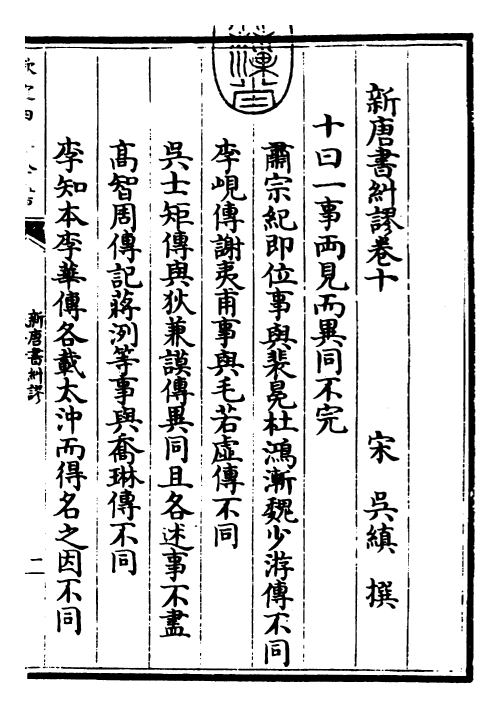 新唐書糾謬卷十
宋 吳縝 撰
十曰一事兩見而異同不完
肅宗紀即位事與裴冕杜鴻漸魏少游傳不同
李峴傳謝夷甫事與毛若虛傳不同
吳士矩傳與狄兼謨傳異同且各述事不盡
高智周傳記蔣洌等事與喬琳傳不同
李知本李華傳各載太沖而得名之因不同
新唐書糾謬
二